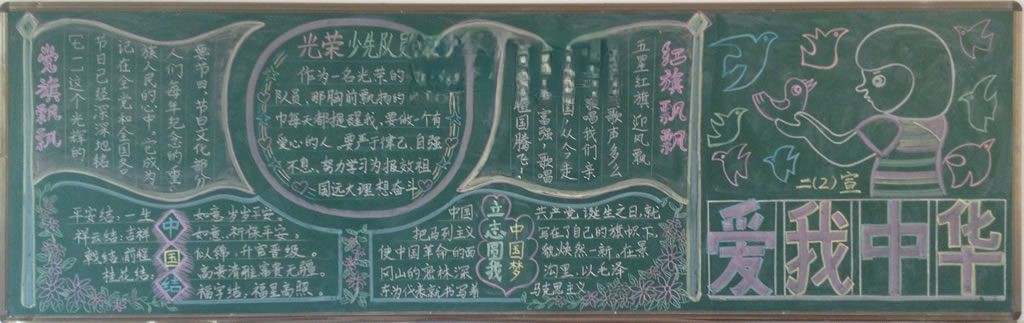 党旗飘飘
七一这个光辉的
节日已经深深地铭
记在全党和全国各
族人民的心中。它成为
人们每年纪念的重
要节日。节日文化部分
光荣少先队员
作为一名光荣的
队员，那胸前飘扬的
巾每天都提醒我，要做一个有
爱心的人，要严于律己，自强
不息，努力学习为报效祖
国远大理想奋斗
红旗飘飘
五星红旗，迎风飘
歌声多么
歌唱我们亲
国，从今走
富强，歌唱
国腾飞。
中国结
平安结：一生如意，岁岁平安。
祥云结：吉祥如意，祈保平安。
前程似锦，升官晋级。
桂花结：高贵清雅，富贵无疆。
福字结：福星高照。
立志圆我中国梦
中国共产党诞生之日，就
把马列主义写在了自己的旗帜下，
使中国革命的面貌焕然一新。在景
冈山的密林深沟里，以毛泽
东为代表就书写着马克思主义
二（2）宣
爱我中华